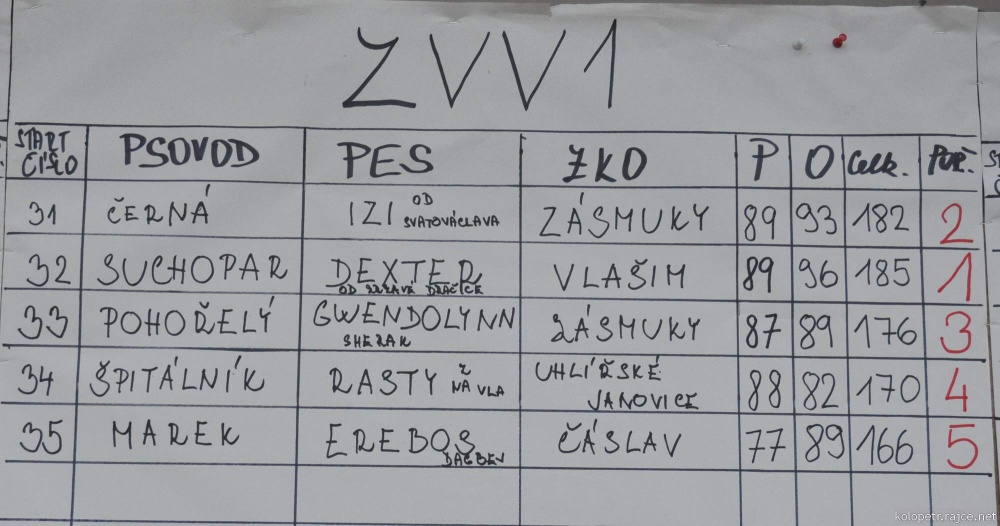 ZVV1
START ČÍSLO PSOVOD PES ZKO P O Celk. POŘ.
31 ČERNÁ IZI OD SVATOVÁCLAVA ZÁSMUKY 89 93 182 2
32 SUCHOPAR DEXTER OD DRAČICE VLAŠIM 89 96 185 1
33 POHOŘELÝ GWENDOLYNN SHERAK ZÁSMUKY 87 89 176 3
34 ŠPITÁLNÍK RASTY Z NA VLA UHLÍŘSKÉ JANOVICE 88 82 170 4
35 MAREK EREBOS DAGBEV ČÁSLAV 77 89 166 5
kolopetr.rajce.net